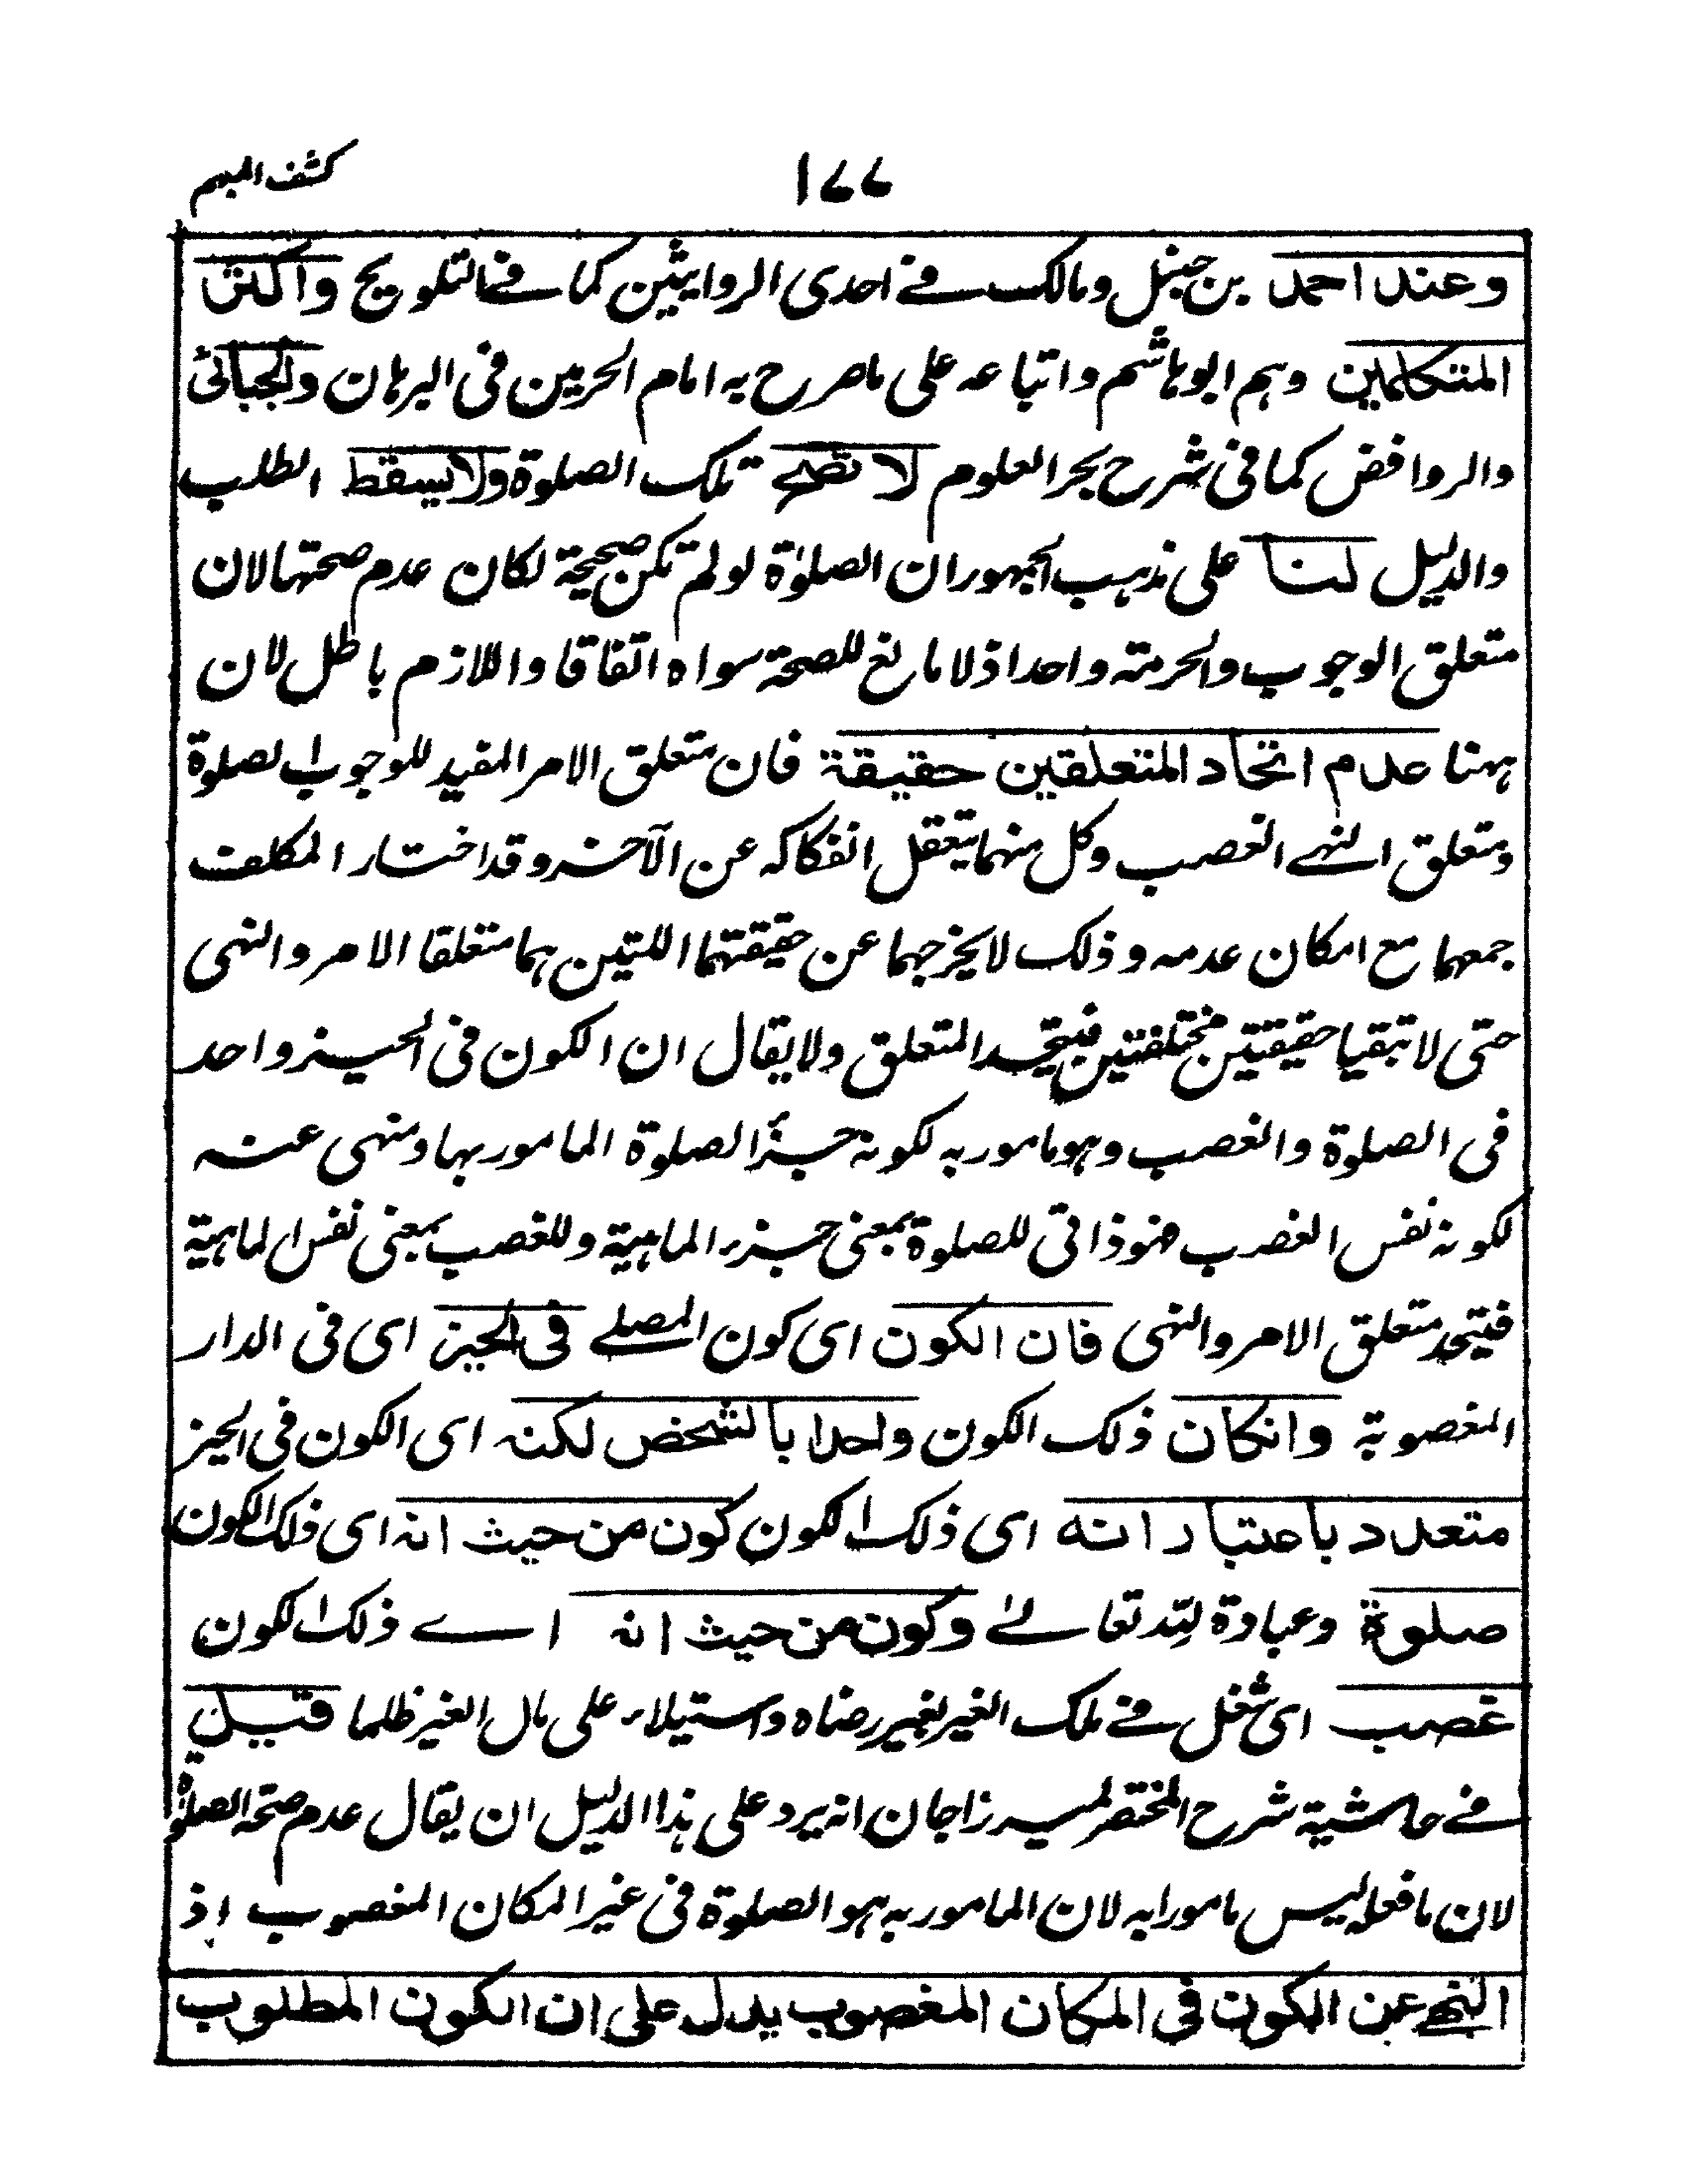 ١٧٧ كشف المبهم
وعند احمد بن حنبل ومالك فے احدى الروايتين كما فے التلويح واكثر
المتكلمين وهم ابو هاشم واتباعه على ما صرح به امام الحرمين فى البرهان والجبائى
والروافض كما فى شرح بحر العلوم لا تصح تلك الصلوة ولا يسقط الطلب
والدليل لنا على مذهب الجمهور ان الصلوٰة لو لم تكن صحيحة لكان عدم صحتها لان
متعلق الوجوب والحرمة واحدا اذ لا مانع للصحة سواه اتفاقا واللازم باطل لان
ههنا عدم اتحاد المتعلقين حقيقة فان متعلق الامر المفيد للوجوب الصلوة
ومتعلق النهے الغصب وكل منهما يتعقل انفكاكه عن الآخر وقد اختار المكلف
جمعهما مع امكان عدمه وذلك لا يخرجهما عن حقيقتهما اللتين هما متعلقا الامر والنهى
حتى لا تبقيا حقيقتين مختلفتين فيتحد المتعلق ولا يقال ان الكون فى الحيز واحد
فى الصلوة والغصب وهو مامور به لكونه جزأ الصلوة المامور بها ومنهى عنه
لكونه نفس الغصب فهو ذاتى للصلوة بمعنى جزء الماهية وللغصب بمعنى نفس الماهية
فيتحد متعلق الامر والنهى فان الكون اى كون المصلے فى الحيز اى فى الدار
المغصوبة وانكان ذلك الكون واحدا بالشخص لكنه اى الكون فى الحيز
متعدد باعتبار انه اى ذلك الكون كون من حيث انه اى ذلك الكون
صلوة وعبادة لله تعالىٰ وكون من حيث انه اے ذلك الكون
غصب اى شغل فے ملك الغير بغير رضاه واستيلاء على مال الغير ظلما قيل
فے حاشية شرح المختصر لميرزا جان انه يرد على هذا الدليل ان يقال عدم صحة الصلوٰة
لان ما فعله ليس مامورا به لان المامور به هو الصلوة فى غير المكان المغصوب إذ
النهے عن الكون فى المكان المغصوب يدل على ان الكون المطلوب